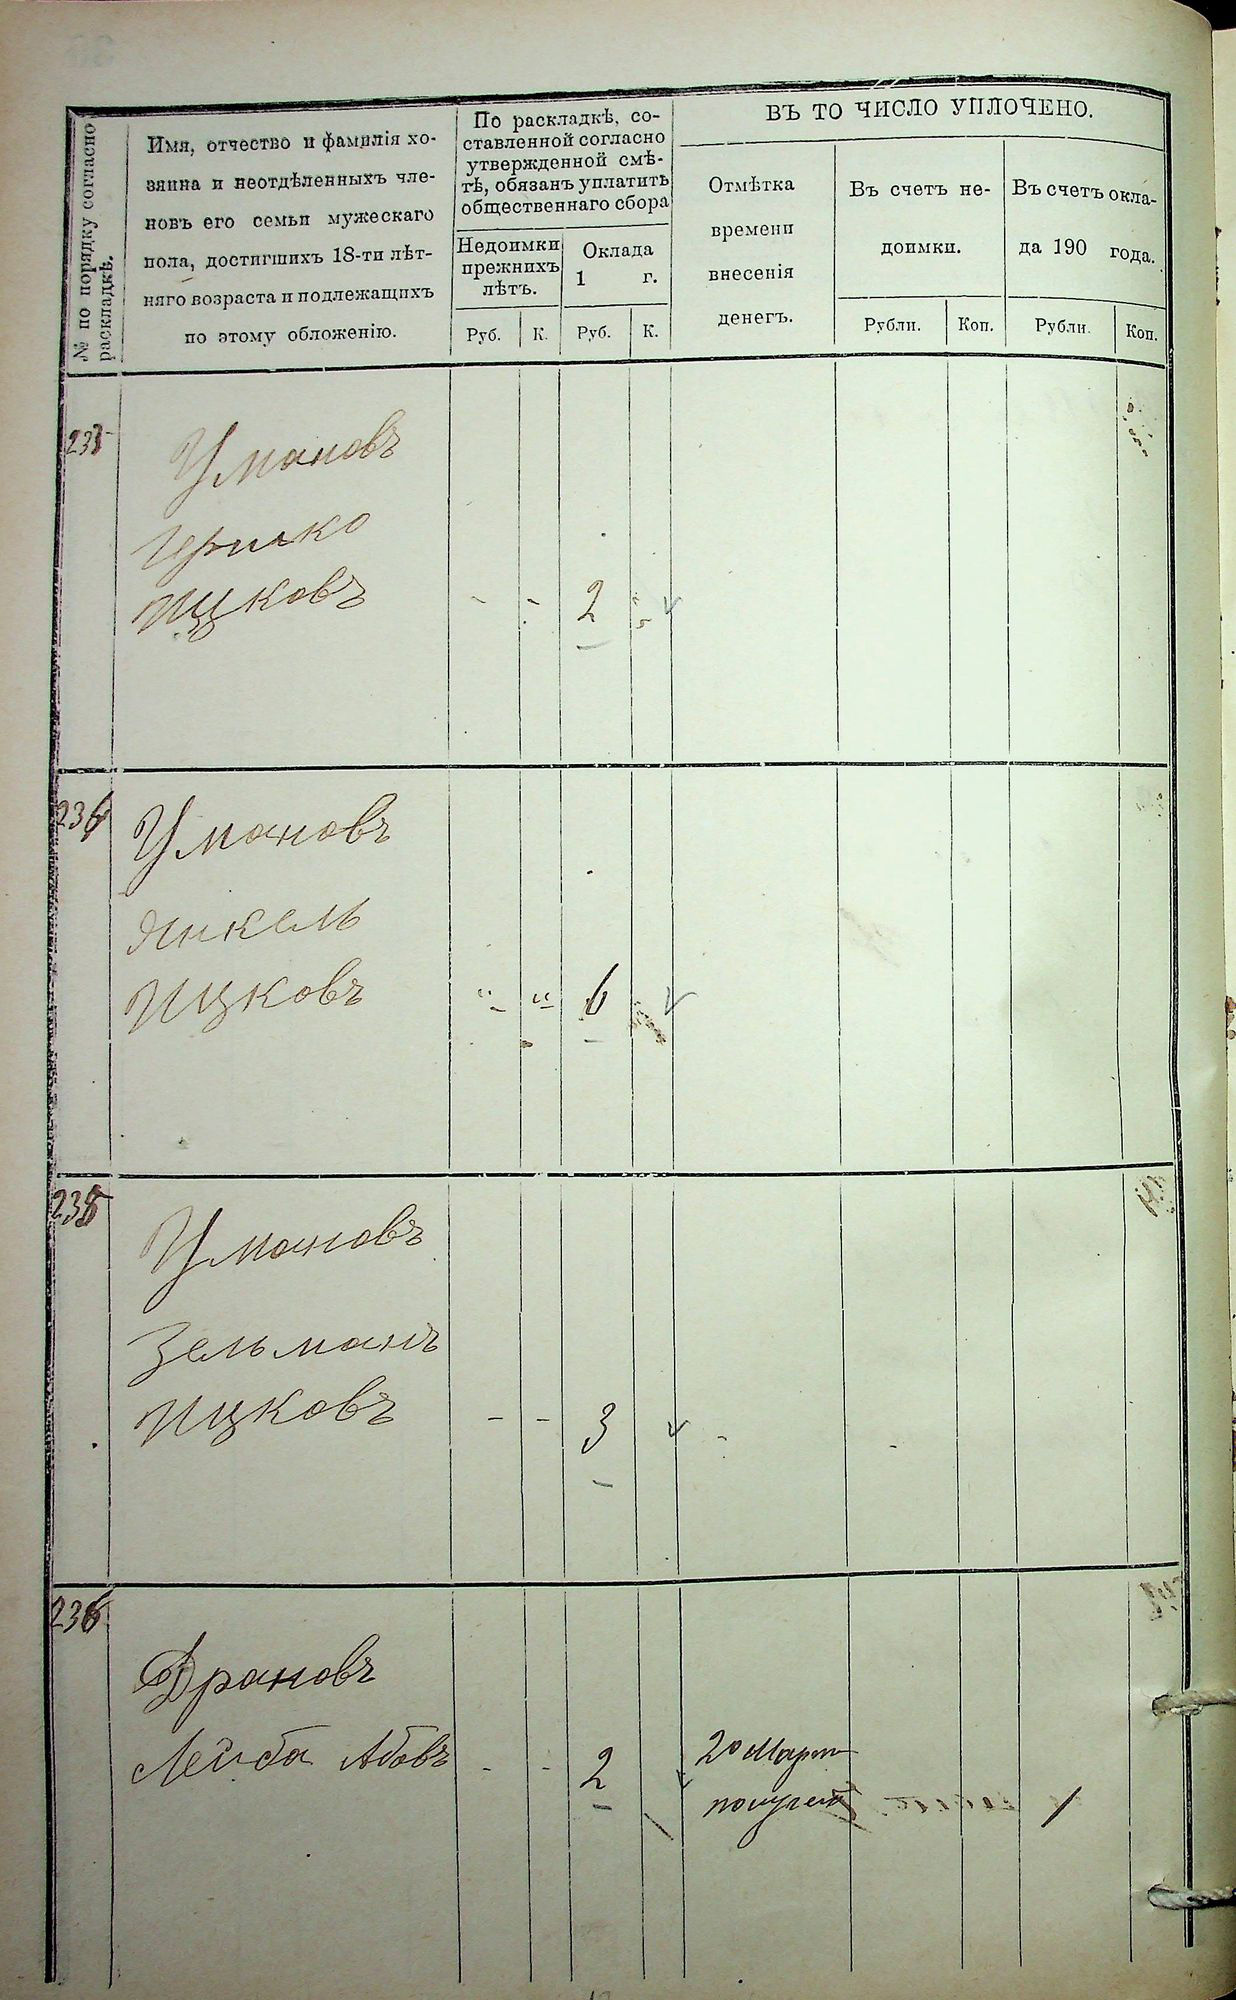 № по порядку согласно
раскладкѣ.
Имя, отчество и фамилія хо-
зяина и неотдѣленныхъ чле-
новъ его семьи мужескаго
пола, достигшихъ 18-ти лѣт-
няго возраста и подлежащихъ
по этому обложенію.
По раскладкѣ, со-
ставленной согласно
утвержденной смѣ-
тѣ, обязанъ уплатить
общественнаго сбора
Недоимки
прежнихъ
лѣтъ.
Оклада
1 г.
Руб. К. Руб. К.
ВЪ ТО ЧИСЛО УПЛОЧЕНО.
Отмѣтка
времени
внесенія
денегъ.
Въ счетъ не-
доимки.
Въ счетъ окла-
да 190 года.
Рубли. Коп. Рубли. Коп.
Умановъ
Гершко
Ицковъ - - 2
Умановъ
Янкель
Ицковъ " " 6
Умановъ
Зельманъ
Ицковъ - - 3
236
Драновъ
Лейба Абовъ - - 2
20 Марта